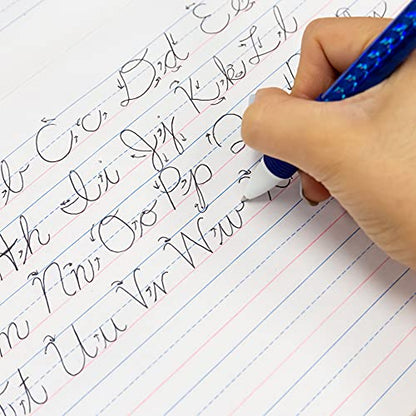 b, C, c, D, d, E e
H, h I, i J, j K, k L, l
m N, n, O, o, P, p
t U, u V, v W, w